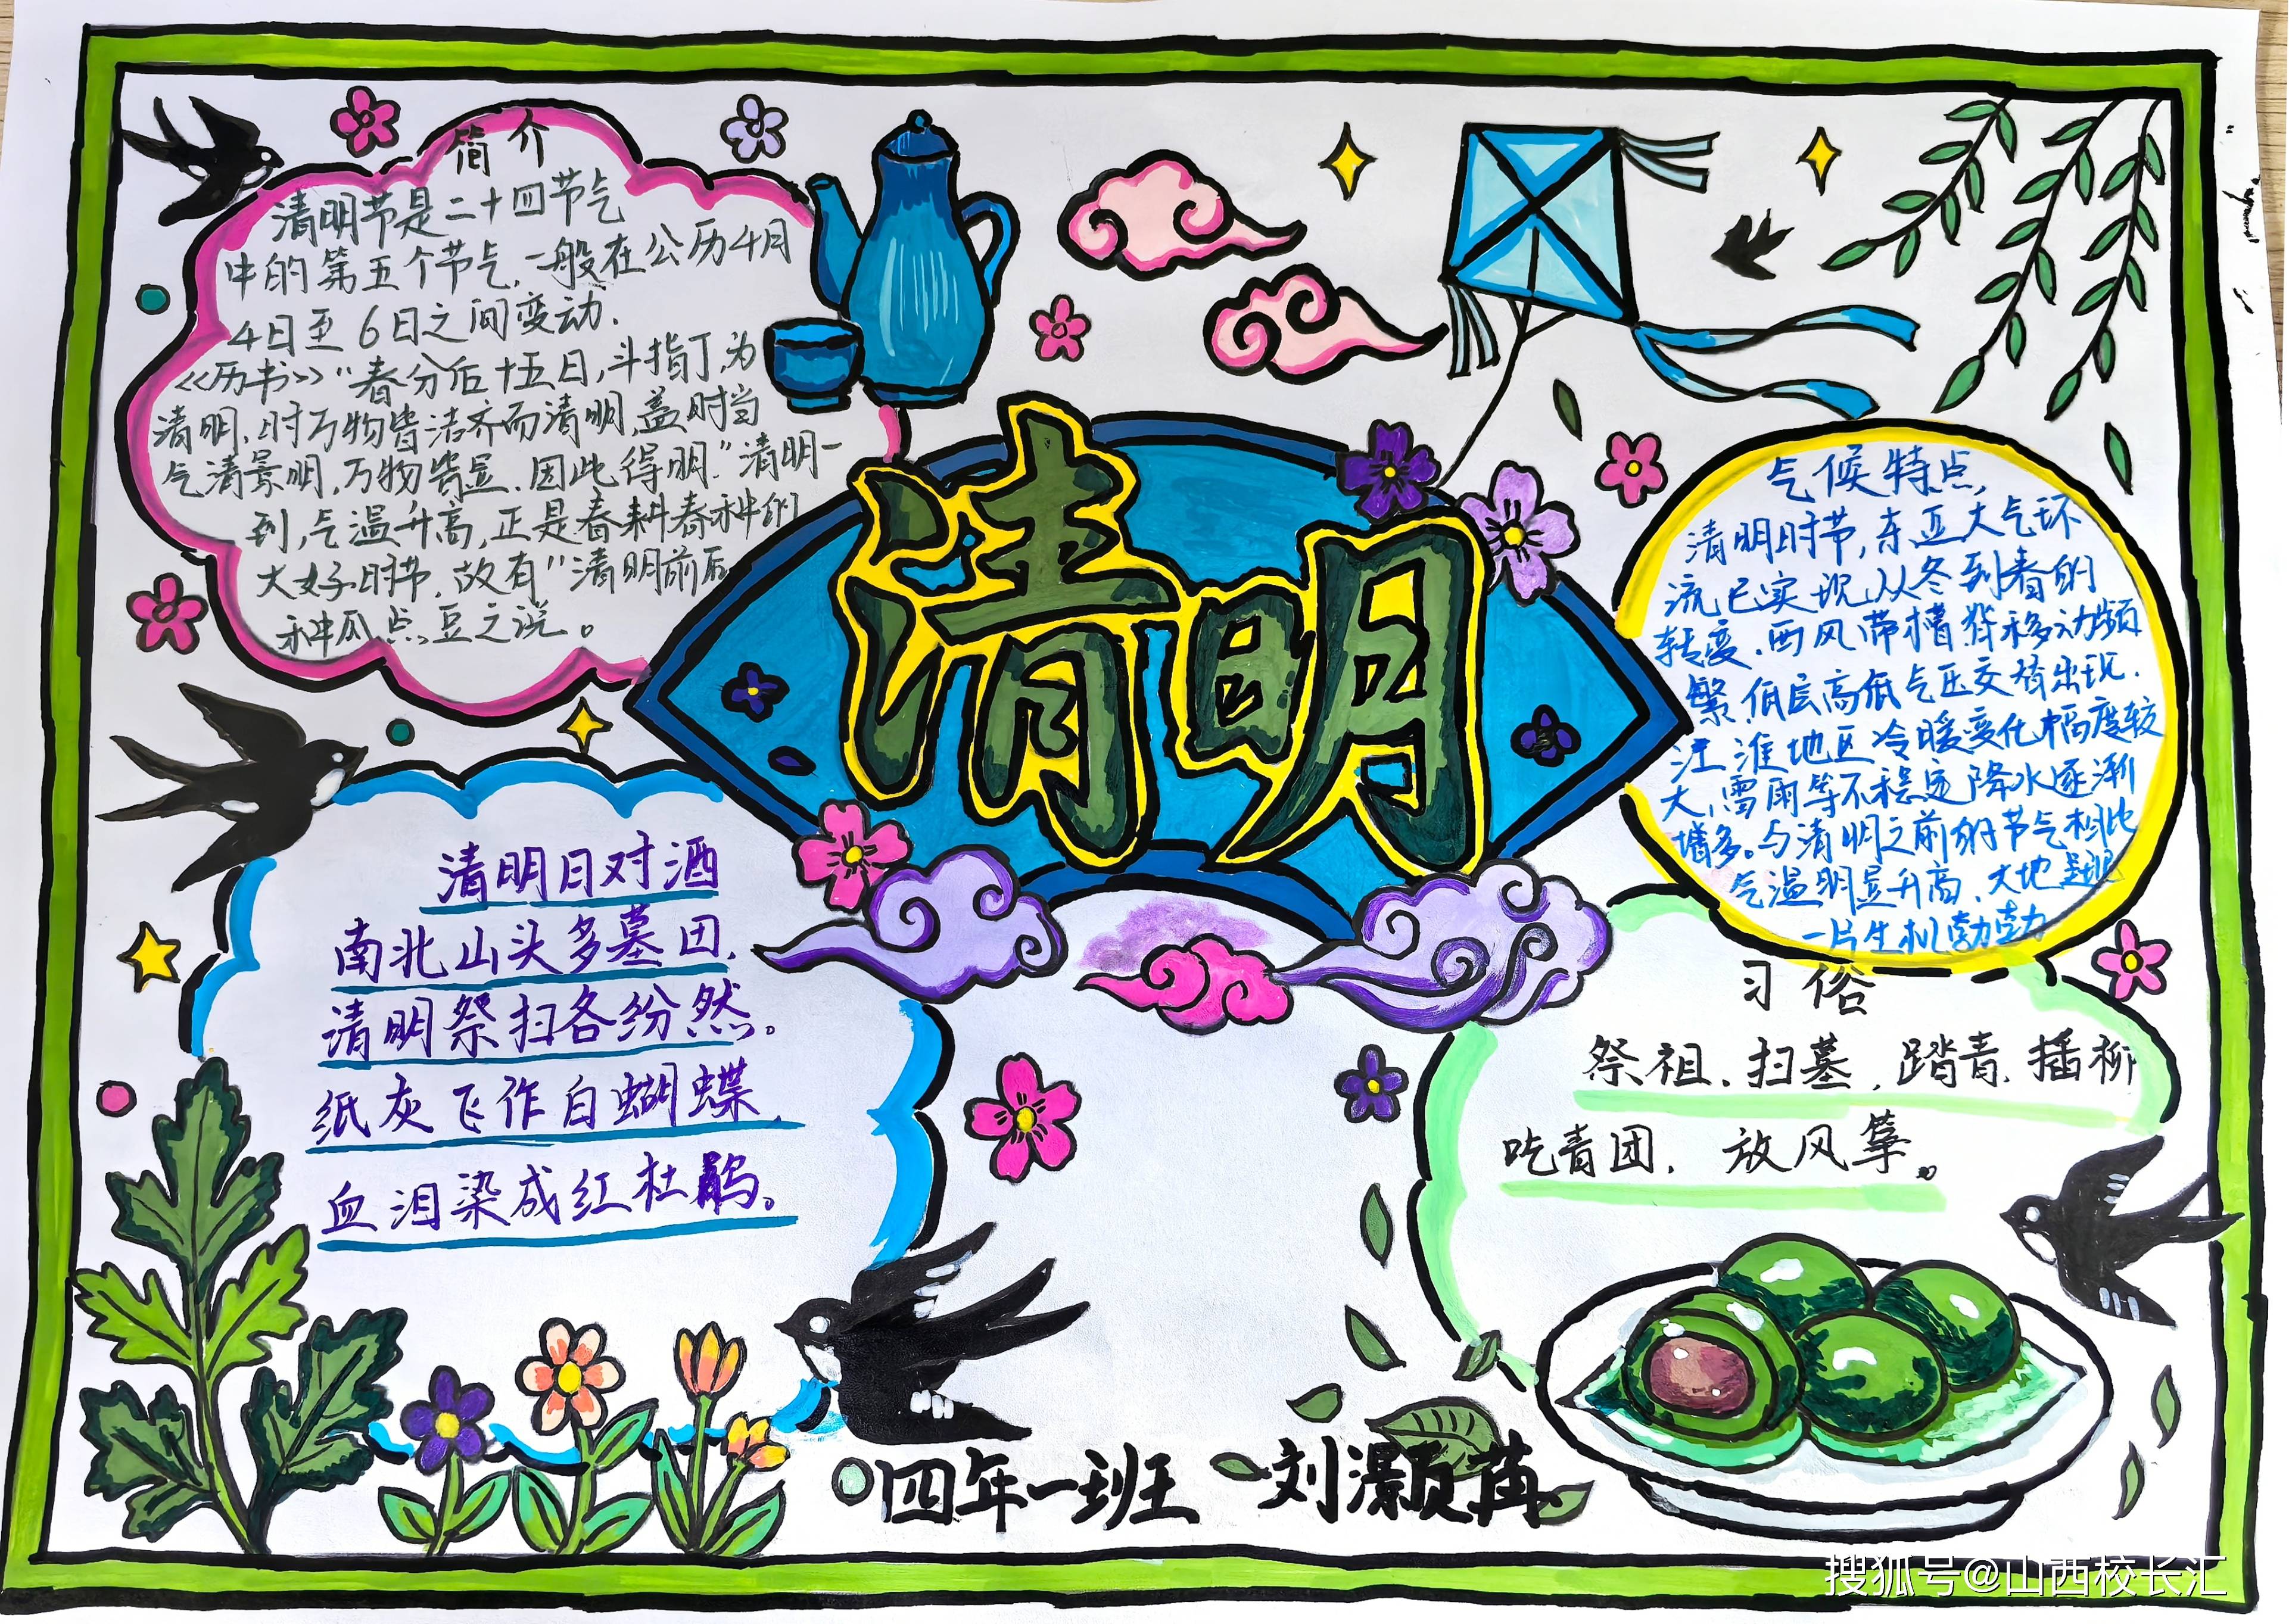 简介
清明节是二十四节气
中的第五个节气,一般在公历4月
4日至6日之间变动.
<<历书>>"春分后十五日,斗指丁,为
清明,时万物皆洁齐而清明,盖时当
气清景明,万物皆显.因此得明."清明一
到,气温升高,正是春耕春种的
大好时节,故有"清明前后
种瓜点豆之说。
清明
气候特点,
清明时节,东亚大气环
流已实现从冬到春的
转变.西风带槽脊移动频
繁,低层高低气压交替出现.
江淮地区冷暖变化幅度较
大,雷雨等不稳定降水逐渐
增多。与清明之前的节气相比
气温明显升高,大地呈现
一片生机勃勃
清明日对酒
南北山头多墓田,
清明祭扫各纷然。
纸灰飞作白蝴蝶,
血泪染成红杜鹃。
习俗
祭祖.扫墓,踏青.播柳
吃青团.放风筝。
四年一班 刘灏颀苒
搜狐号@山西校长汇